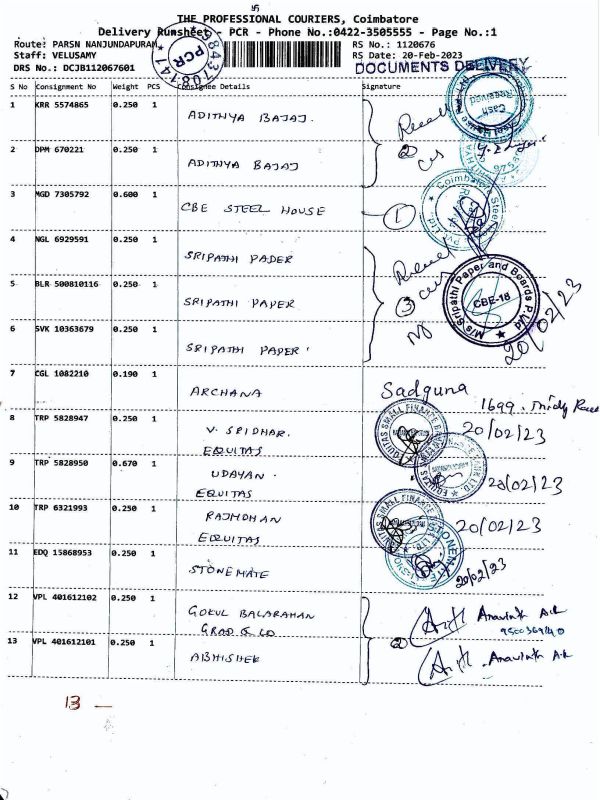 THE PROFESSIONAL COURIERS, Coimbatore
Delivery Runsheet - PCR - Phone No.:0422-3505555 - Page No.:1
Route: PARSN NANJUNDAPURAM
RS No.: 1120676
Staff: VELUSAMY
RS Date: 20-Feb-2023
DRS No.: DCJB112067601
DOCUMENTS DELIVERY
PCR
9843708141
S No Consignment No Weight PCS Consignee Details Signature
1 KRR 5574865 0.250 1 ADITHYA BAJAJ.
2 DPM 670221 0.250 1 ADITHYA BAJAJ
2
3 MGD 7305792 0.600 1 CBE STEEL HOUSE 1
4 NGL 6929591 0.250 1 SRIPATHI PAPER
5 BLR 500810116 0.250 1 SRIPATHI PAPER
3
M/s Sripathi Paper and Boards P Ltd
CBE-18
20/02/23
6 SVK 10363679 0.250 1 SRIPATHI PAPER
7 CGL 1082210 0.190 1 ARCHANA Sadguna
1699
8 TRP 5828947 0.250 1 V. SRIDHAR. 20/02/23
EQUITAS
EQUITAS SMALL FINANCE BANK
9 TRP 5828950 0.670 1 UDAYAN. 20/02/23
EQUITAS
10 TRP 6321993 0.250 1 RAJMOHAN 20/02/23
EQUITAS
EQUITAS SMALL FINANCE
11 EDQ 15868953 0.250 1 STONEMATE 20/02/23
STONEMATE
12 VPL 401612102 0.250 1 GOKUL BALARAMAN Aravinth A.R
GRAD & CO
2
13 VPL 401612101 0.250 1 ABHISHEK Aravinth A.R
13 —